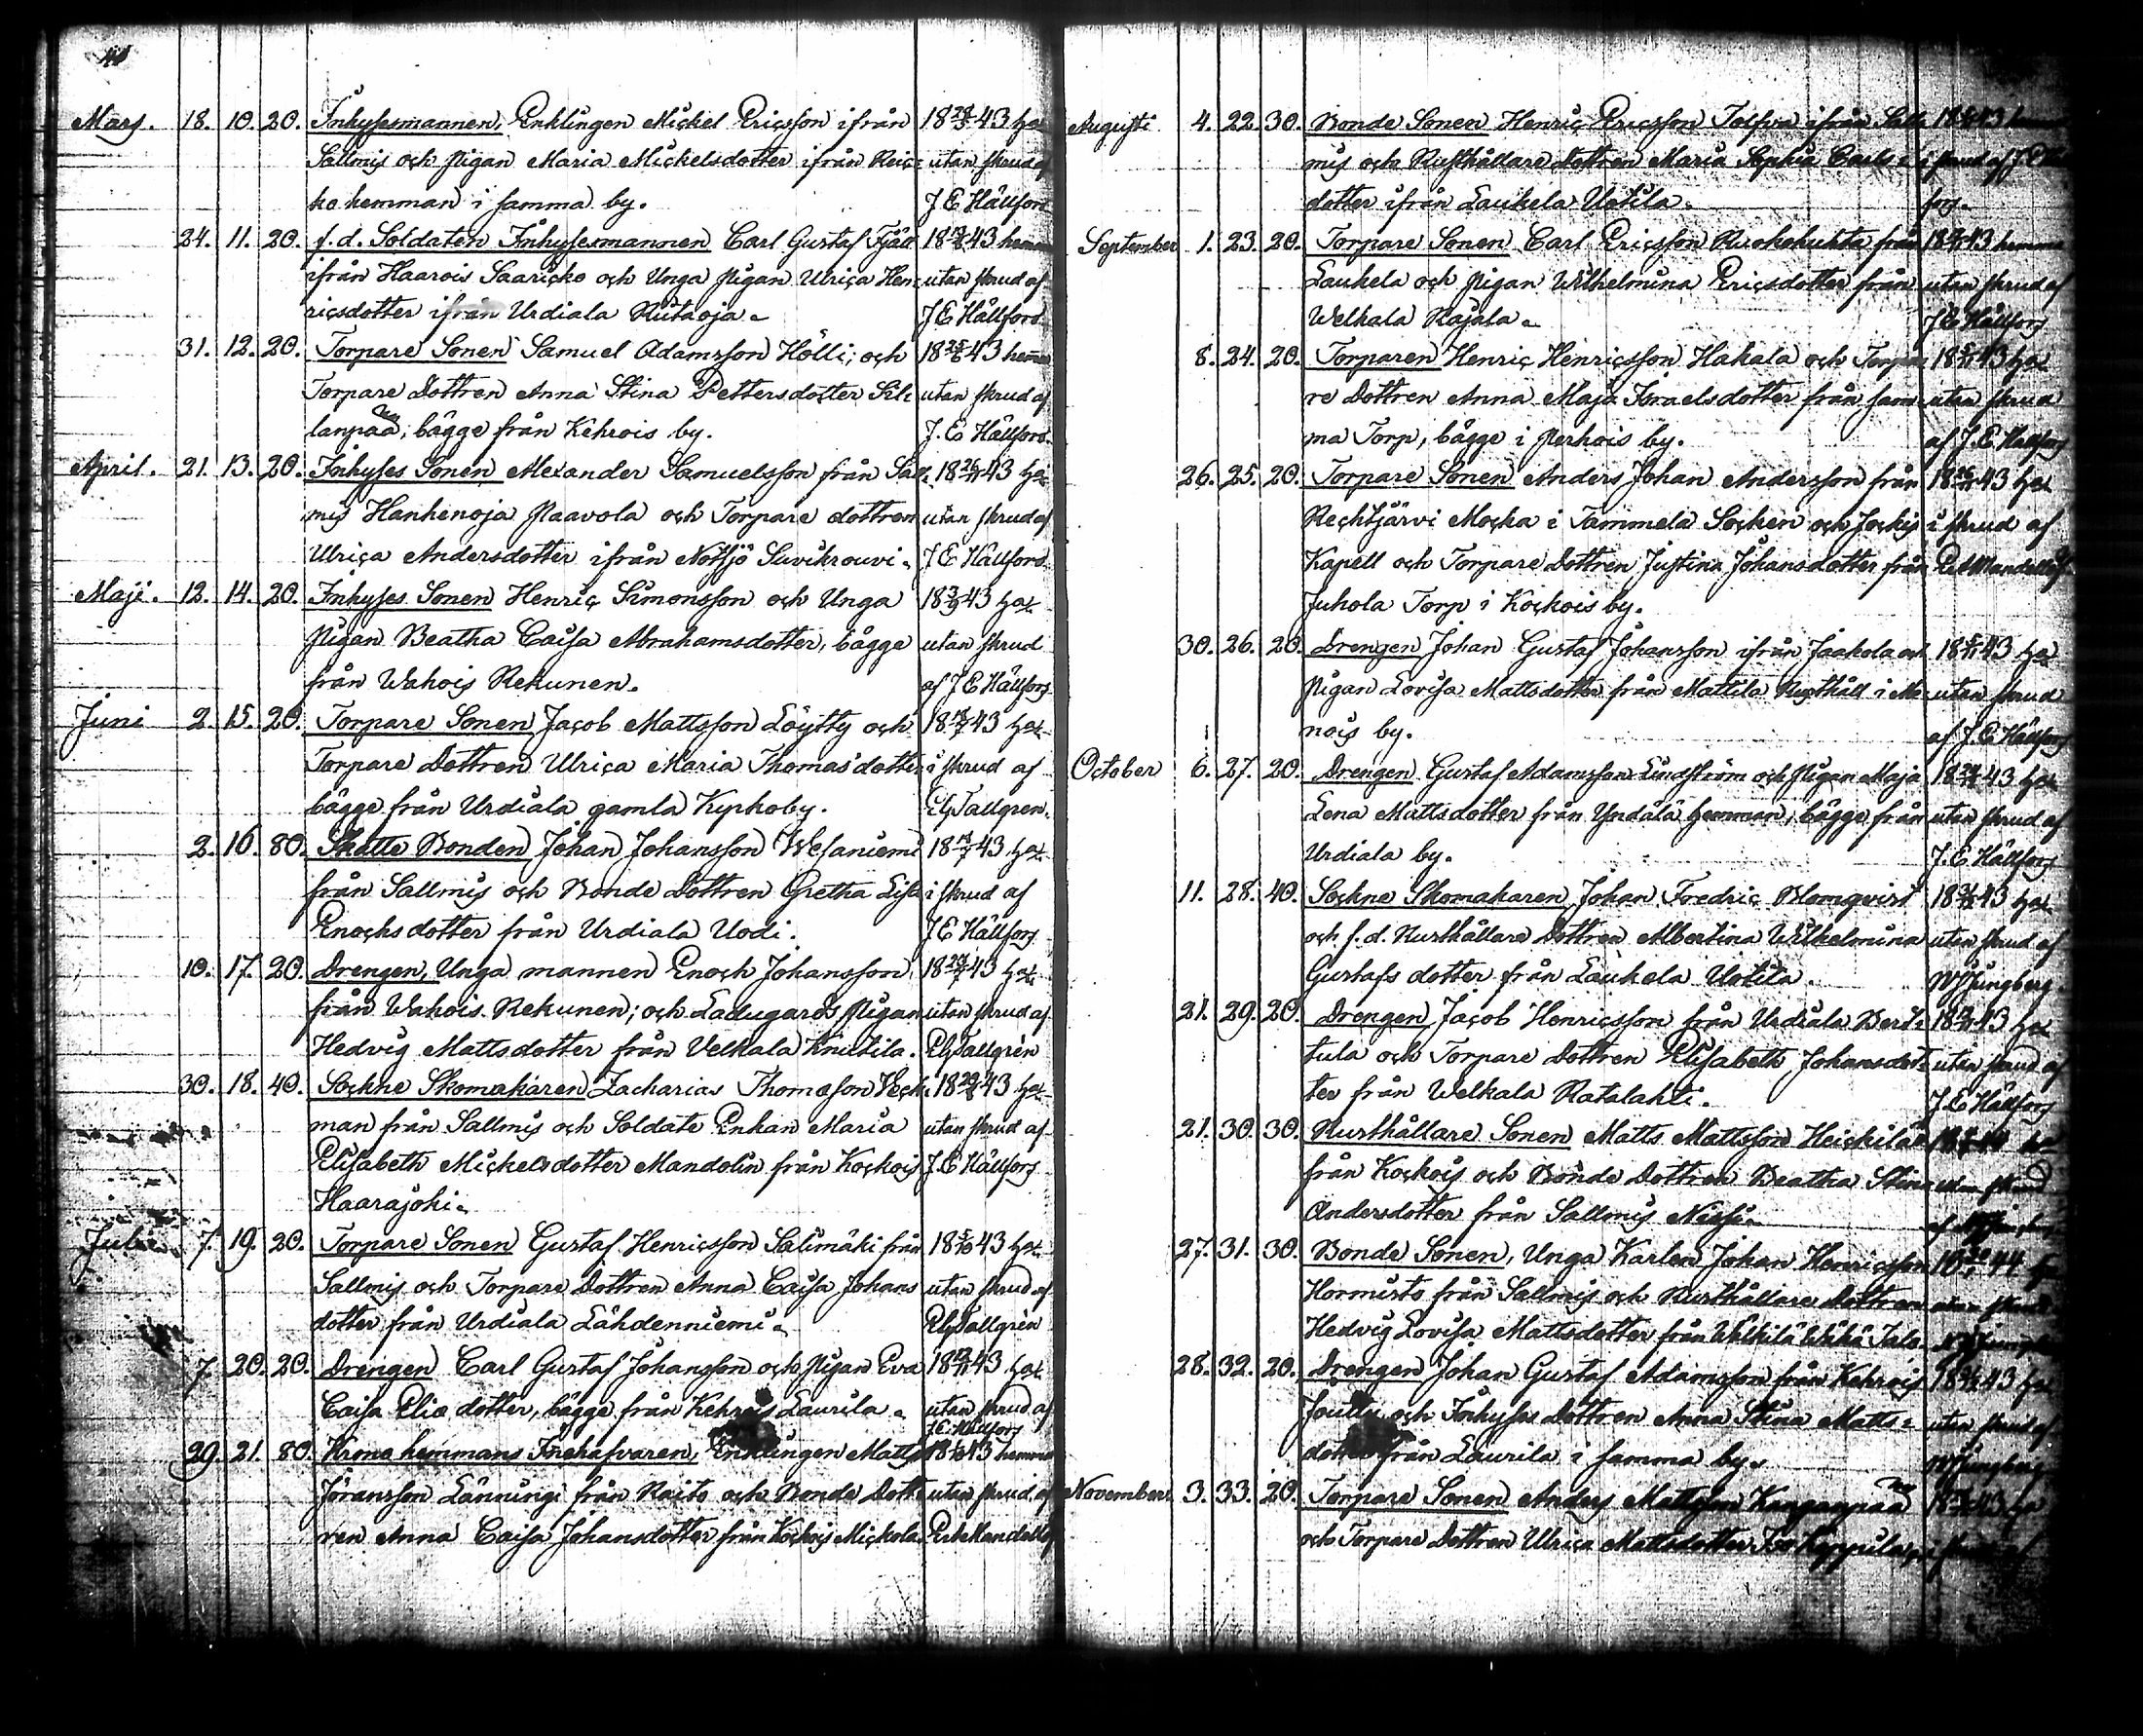 Mars. 18. 10. 20. Inhysesmannen, Enklingen Mickel Ericsson ifrån 18 43
Sallmis och Pigan Maria Mickelsdotter ifrån utan skrud af
hemman i samma by. J E Hällfors
24. 11. 20. f. d. Soldaten Inhysesmannen Carl Gustaf Fjäll 18 43 hemma
ifrån Haarois Saaricko och Unga Pigan Ulrica Hen- utan skrud af
ricsdotter ifrån Urdiala Rutaoja. J E Hällfors
31. 12. 20. Torpare Sonen Samuel Adamsson Hölli, och 18 43 hemma
Torpare Dottren Anna Stina Pettersdotter Sil- utan skrud af
lanpää, bägge från Kehrois by. J. E Hällfors
April. 21. 13. 20. Inhyses Sonen Alexander Samuelsson från Sall- 18 43
mis Hanhenoja Paavola och Torpare dottren utan skrud af
Ulrica Andersdotter ifrån Notsjö Savikrouvi. J E Hällfors
Maji. 12. 14. 20. Inhyses Sonen Henric Simonsson och Unga 18 43
Pigan Beatha Caisa Abrahamsdotter, bägge utan skrud
från Wahois Rekunen. af J E Hällfors
Juni 2. 15. 20. Torpare Sonen Jacob Mattsson Löytty och 18 43
Torpare Dottren Ulrica Maria Thomasdotter i skrud af
bägge från Urdiala gamla Kyrkoby. Tallgren.
2. 16. 80. Skatte Bonden Johan Johansson Wesaniemi 18 43
från Sallmis och Bonde Dottren Gretha Lisa i skrud af
Enochsdotter från Urdiala Uodi. J E Hällfors
10. 17. 20. Drengen, Unga mannen Enoch Johansson, 18 43
från Wahois Rekunen; och Ladugårds Pigan utan skrud af
Hedvig Mattsdotter från Velkala Knutila. Tallgrén
30. 18. 40. Sockne Skomakaren Zacharias Thomasson Weck- 18 43
man från Sallmis och Soldate Enkan Maria utan skrud af
Elisabeth Mickelsdotter Mandolin från Kockois J. E Hällfors
Haarajoki.
Julii. 7. 19. 20. Torpare Sonen Gustaf Henricsson Salimäki från 18 43
Sallmis och Torpare Dottren Anna Caisa Johans utan skrud af
dotter från Urdiala Lähdenniemi. Tallgrén
7. 20. 20. Drengen Carl Gustaf Johansson och Pigan Eva 18 43
Caisa Eliæ dotter, bägge från Kehrois Laurila. utan skrud af
J E Hällfors
29. 21. 80. Krono hemmans Innehafvaren, Enklingen Matts 18 43 hemma
Jöransson Länningi från Raito och Bonde Dott- utan skrud af
ren Anna Caisa Johansdotter från Kockois Mickola
Augusti 4. 22. 30. Bonde Sonen Henric Ericsson Tolfva ifrån Sall- 18 43 hemma
mis och Rusthållare Dottren Maria Sophia Carls- i skrud af J E Häll
dotter ifrån Laukela Uotila. fors.
September 1. 23. 20. Torpare Sonen Carl Ericsson Ruokokuhta från 18 43 hemma
Laukela och Pigan Wilhelmina Ericsdotter från utan skrud af
Welkala Rajala. J E Hällfors
8. 24. 20. Torparen Henric Henricsson Hakala och Torpa- 18 43
re Dottren Anna Maja Israelsdotter från sam- utan skrud
ma Torp, bägge i Perhois by. af J. E Hällfors
26. 25. 20. Torpare Sonen Anders Johan Andersson från 18 43
Rechtjärvi Mocka i Tammela Socken och Jockis i skrud af
Kapell och Torpare Dottren Justina Johansdotter från
Juhola Torp i Kockois by.
30. 26. 20. Drengen Johan Gustaf Johansson ifrån Jaakola och 18 43
Pigan Lovisa Mattsdotter från Mattila Rusthåll i utan skrud
nois by. af J. E Hällfors
October 6. 27. 20. Drengen Gustaf Adamsson Lindström och Pigan Maja 18 43
Lena Mattsdotter från Yndälä hemman, bägge från utan skrud af
Urdiala by. J. E Hällfors
11. 28. 40. Sockne Skomakaren Johan Fredric Blomqvist 18 43
och f. d. Rusthållare Dottren Albertina Wilhelmina utan skrud af
Gustafs dotter från Laukela Uotila. Ljungberg
21. 29. 20. Drengen Jacob Henricsson från Urdiala Bert- 18 43
tula och Torpare Dottren Elisabeth Johansdot- utan skrud af
ter från Welkala Ratalahti. J. E Hällfors
21. 30. 30. Rusthållare Sonen Matts Mattsson Heickilä 18 44
från Kockois och Bonde Dottren Beatha Stina utan skrud
Andersdotter från Sallmis af
27. 31. 30. Bonde Sonen, Unga Karlen Johan Henricsson 18 44
Hormisto från Sallmis och Rusthållare Dottren utan skrud
Hedvig Lovisa Mattsdotter från Wähä Talo.
28. 32. 20. Drengen Johan Gustaf Adamsson från Kehrois 18 43
och Inhyses Dottren Anna Stina Matts- utan skrud af
dotter från Laurila i samma by. Ljungberg
November 3. 33. 20. Torpare Sonen Anders Mattsson Kangaspää 18 43
och Torpare Dottren Ulrica Mattsdotter Iso Keppilä